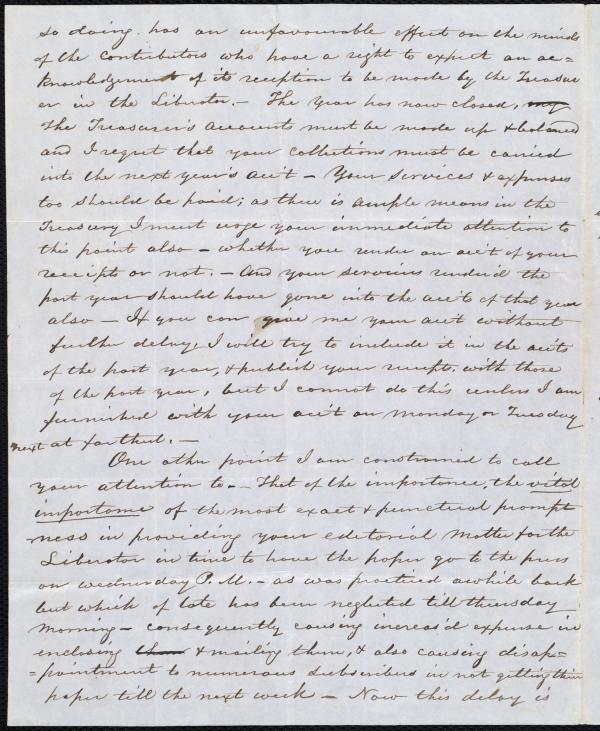 so doing. has an unfavourable effect on the minds
of the contributors who have a right to expect an ac=
knowledgement of its reception to be made by the Treasur
er in the Liberator. — The year has now closed, my
the Treasurer's accounts must be made up & balanced
and I regret that your collections must be carried
into the next year's acc't — Your services & expenses
too should be paid; as there is ample means in the
Treasury I must urge your immediate attention to
this point also — whether you render an acc't of your
receipts or not. — And your services rendered the
past year should have gone into the acc'ts of that year
also — If you can give me your acc't without
further delay, I will try to include it in the acc'ts
of the past year, & publish your receipts with those
of the past year, but I cannot do this unless I am
furnished with your acc't on Monday or Tuesday
next at farthest. —
One other point I am constrained to call
your attention to. — That of the importance, the vital
importance of the most exact & punctual prompt
ness in providing your editorial matter for the
Liberator in time to have the paper go to the press
on Wednesday P.M. — as was practiced awhile back
but which of late has been neglected till Thursday
morning — consequently causing increas'd expense in
enclosing them & mailing them, & also causing disap=
=pointment to numerous subscribers in not getting their
paper till the next week — Now this delay is